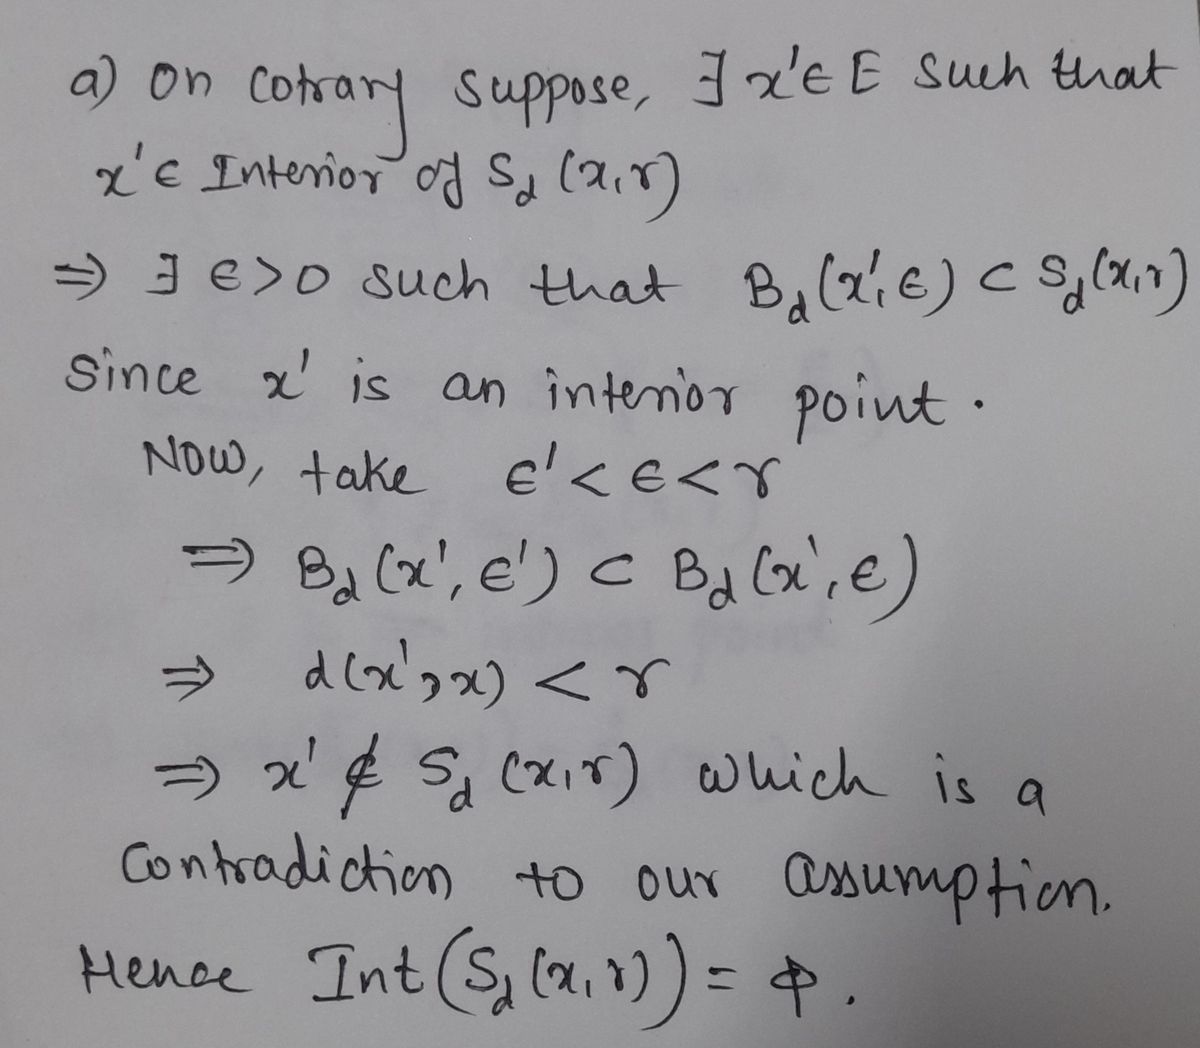 a) On Cotrary suppose, ∃ x'∈ E such that
x'∈ Interior of S_d (x,r)
⇒ ∃ ϵ>0 such that B_d(x',ϵ) ⊂ S_d(x,r)
Since x' is an interior point.
Now, take ϵ'<ϵ<r
⇒ B_d (x', ϵ') ⊂ B_d (x', ϵ)
⇒ d(x',x) < r
⇒ x' ∉ S_d (x,r) which is a
Contradiction to our assumption.
Hence Int(S_d (x,r)) = ϕ.